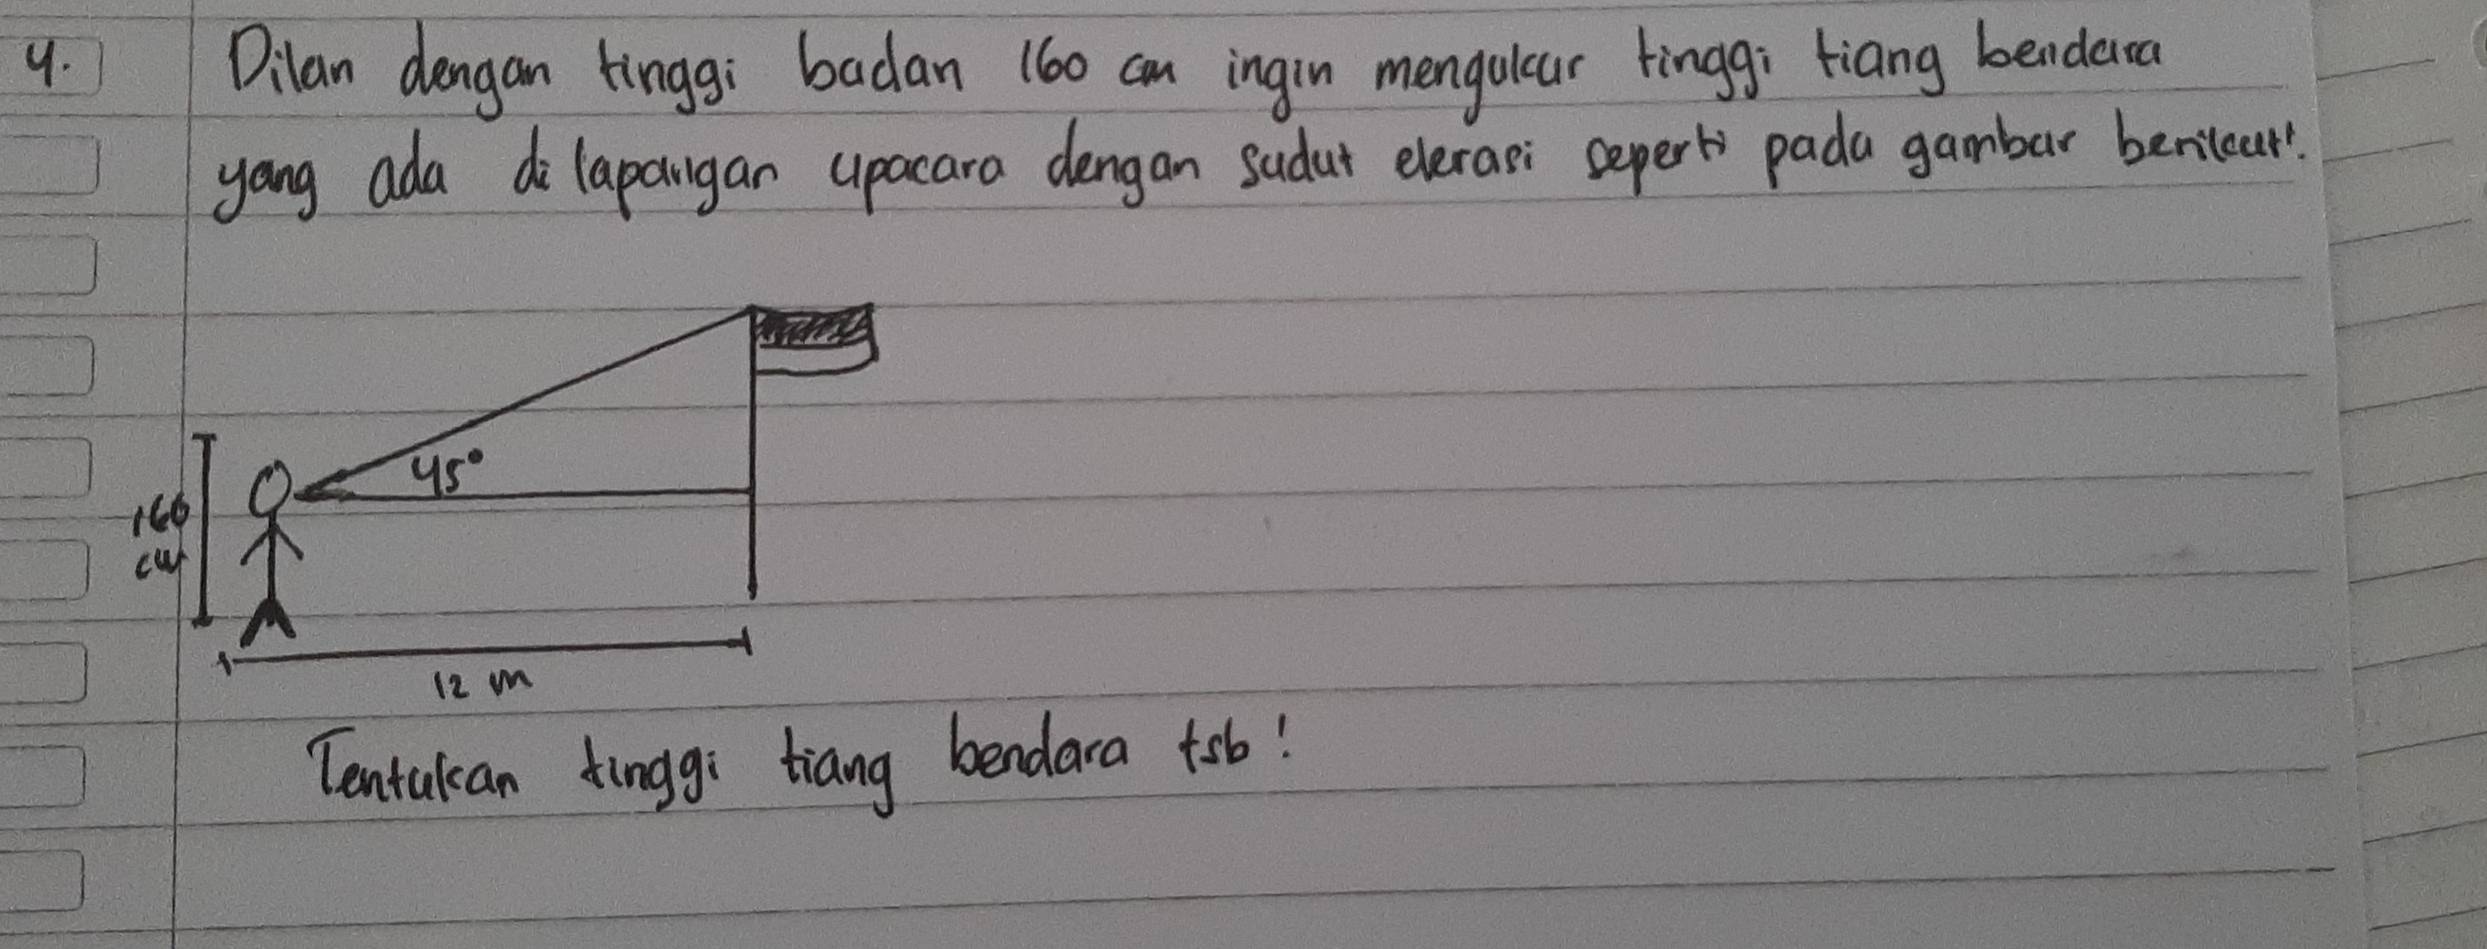 4. Dilan dengan tinggi badan 160 cm ingin mengukur tinggi tiang bendara
yang ada di lapangan upacara dengan sudut elevasi seperti pada gambar berikut!.
45°
160
cm
12 m
Tentukan tinggi tiang bendara tsb!